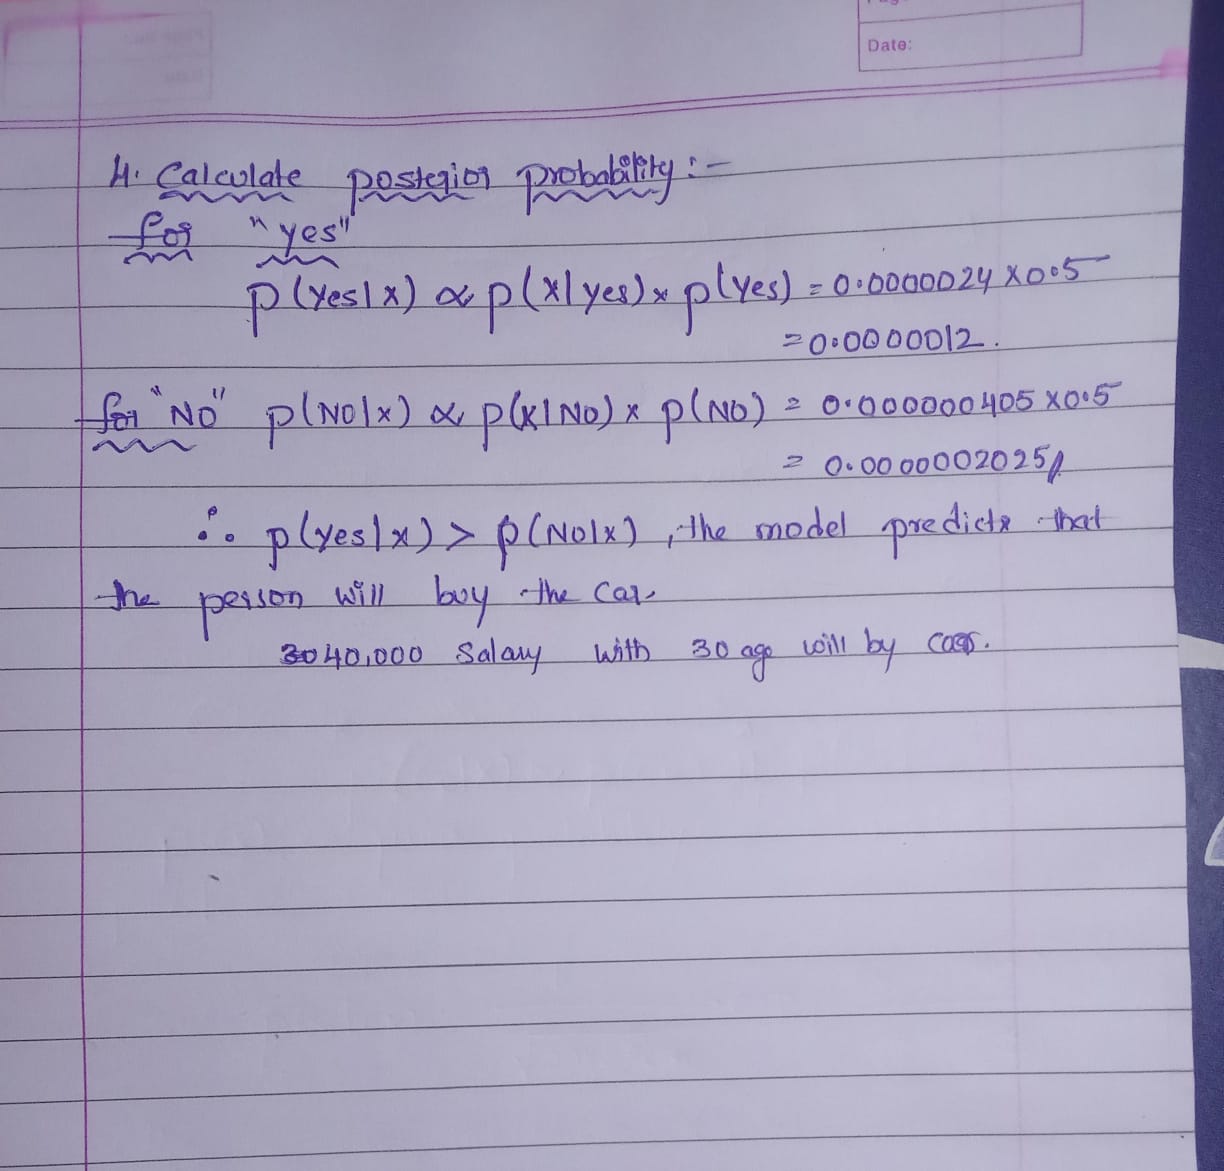 Date:
4. Calculate posterior probability :-
for "yes"
p(yes|x) ∝ p(x|yes) × p(yes) = 0.0000024 × 0.5
= 0.0000012.
for "NO" p(NO|x) ∝ p(x|NO) × p(NO) = 0.000000405 × 0.5
= 0.0000002025
∴ p(yes|x) > p(NO|x), the model predicts that
the person will buy the car
40,000 Salary with 30 age will by cars.